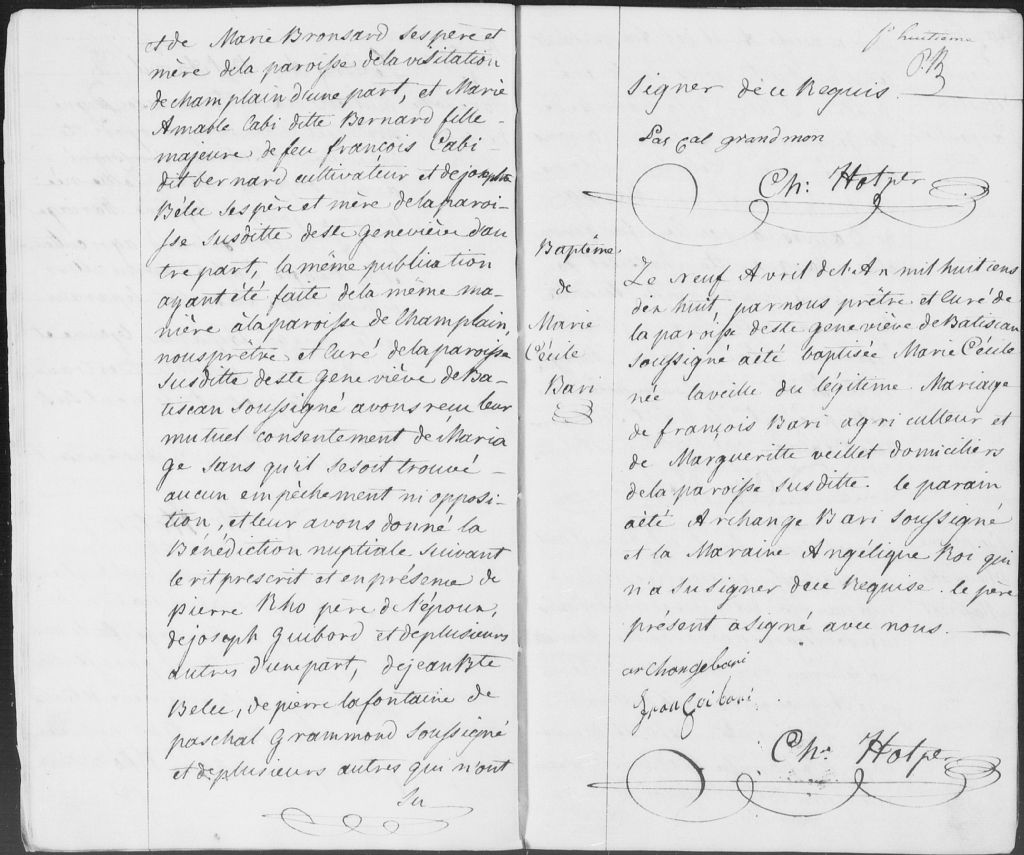 et de Marie Bronsard ses père et
mère dela paroisse dela visitation
de champlain d'une part, et Marie
Amable Cabi ditte Bernard fille
majeure de feu françois Cabi
dit bernard cultivateur et de josephte
Bélee ses père et mère de la paroi-
sse susditte deste geneviève d'au
tre part, la même publication
ayant été faite dela même ma-
nière àla paroisse de Champlain,
nous prêtre et Curé dela paroisse
susditte deste geneviève deBa-
tiscan soussigné avons recu leur
mutuel consentement de Maria
ge sans qu'il se soit trouvé
aucun empèchement ni opposi-
tion, et leur avons donné la
Bénédiction nuptiale suivant
le rit prescrit et en présence de
pierre Rho père de l'époux,
de joseph Guibord et de plusieurs
autres d'une part, de jean Bte
Belee, de pierre lafontaine de
paschal Grammond soussigné
et de plusieurs autres qui n'ont
su
fo huitième
P.B
signer de ce Requis.
Pascal grandmon
Ch: Hotper
Baptême
de
Marie
Cécile
Bari
Le neuf Avril de l'An mil huit cens
dix huit, par nous prêtre et Curé de
la paroisse deste geneviève de Batiscan
soussigné aété baptisée Marie Cécile
née la veille du légitime Mariage
de françois Bari agriculteur et
de Margueritte veillet domiciliers
dela paroisse susditte. le parain
aété Archange Bari soussigné
et la Maraine Angélique Roi qui
n'a su signer de ce Requise. le père
présent a signé avec nous.
archange bari
françoi bari
Ch: Hotper